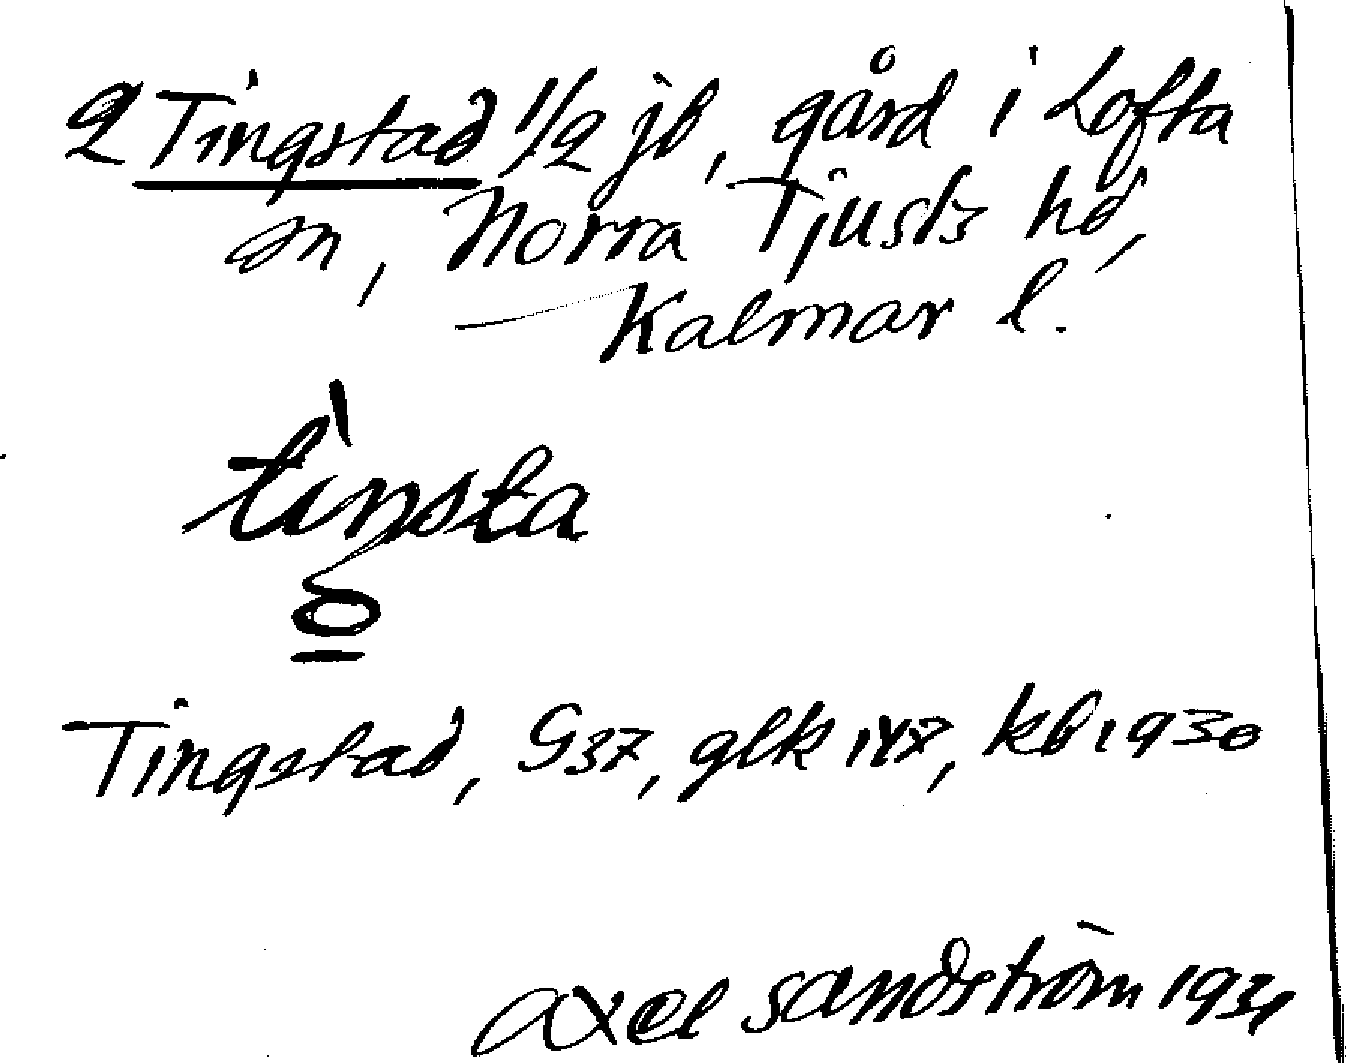 2 Tingstad 1/2 jb, gård i Lofta
sn, Norra Tjusts hd,
Kalmar l.
tiŋsta
Tingstad, G37, glk 147, kb 1930
Axel Sandström 1931